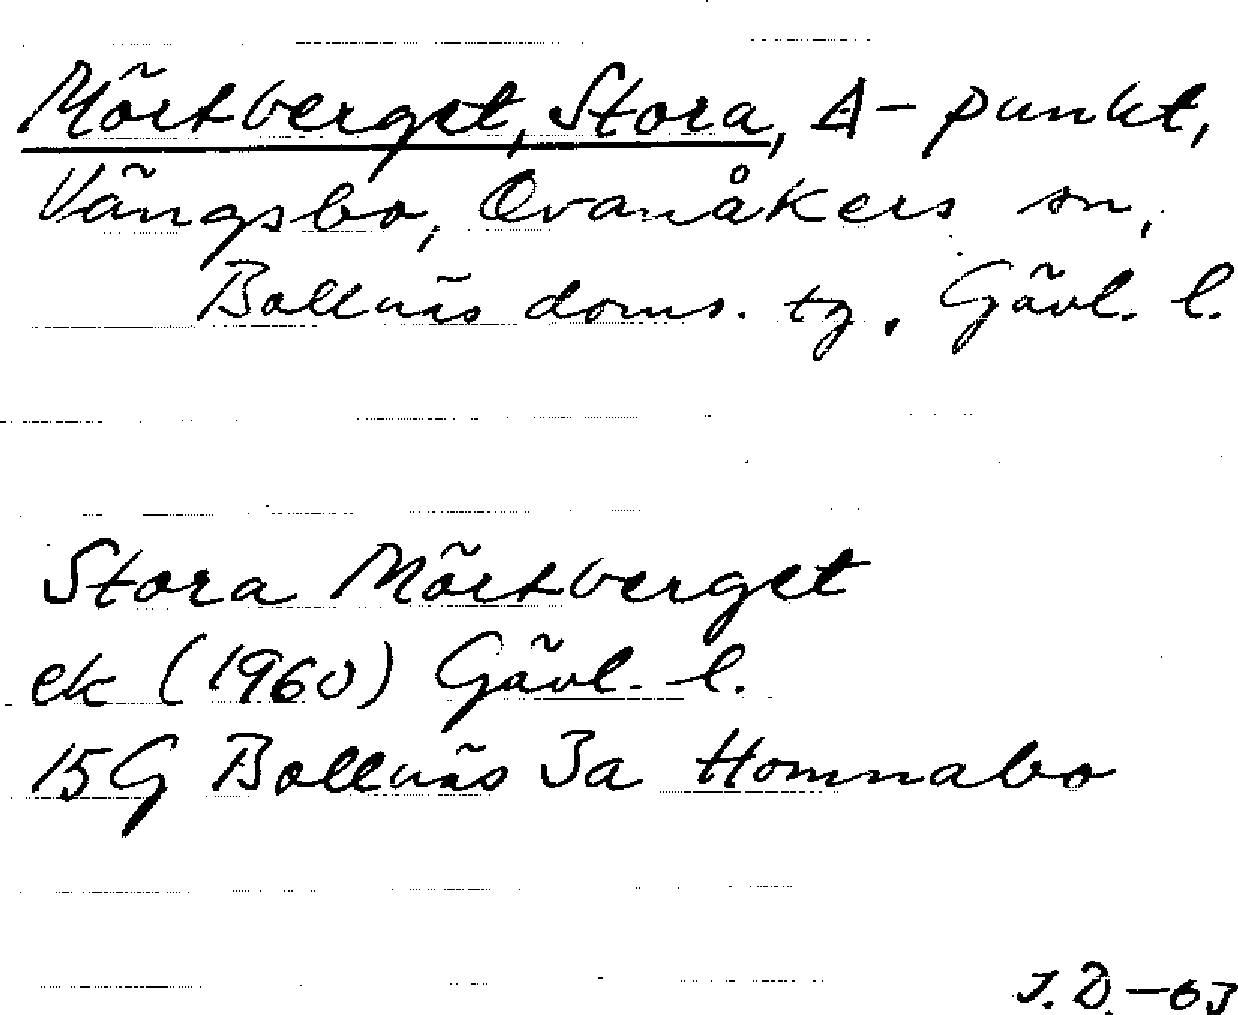 Mörtberget, Stora, A-punkt,
Vängsbo, Ovanåkers sn,
Bollnäs doms. tg, Gävl. l.
Stora Mörtberget
ek (1960) Gävl. l.
15G Bollnäs 3a Homnabo
J.D.-63